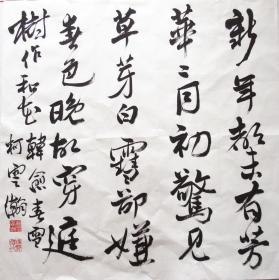 新年都未有芳
華二月初驚見
草芽白雪卻嫌
春色晚故穿庭
樹作飛花 韓愈春雪
柯雲瀚